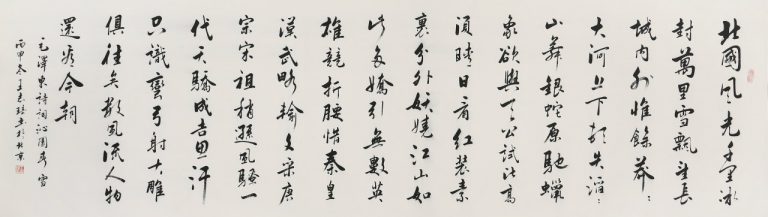 北國風光千里冰
封萬里雪飄望長
城内外惟餘莽〻
大河上下頓失滔〻
山舞銀蛇原馳蠟
象欲與天公試比高
須晴日看紅裝素
裹分外妖嬈江山如
此多嬌引無數英
雄競折腰惜秦皇
漢武略輸文采唐
宗宋祖稍遜風騷一
代天驕成吉思汗
只識彎弓射大雕
俱往矣數風流人物
還看今朝
毛澤東詩詞沁園春 雪
丙申冬王於北京